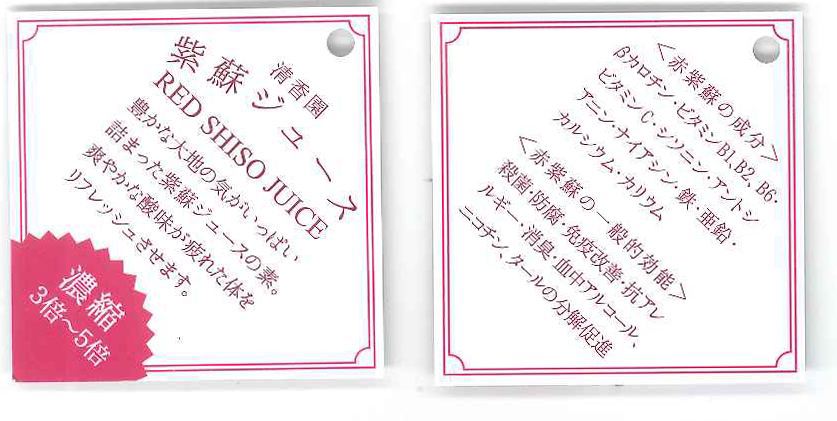 清香園
紫蘇ジュース
RED SHISO JUICE
豊かな大地の気がいっぱい
詰まった紫蘇ジュースの素。
爽やかな酸味が疲れた体を
リフレッシュさせます。
濃縮
3倍～5倍
＜赤紫蘇の成分＞
βカロチン・ビタミンB1、B2、B6・
ビタミンC・シソニン・アントシ
アニン・ナイアシン・鉄・亜鉛・
カルシウム・カリウム
＜赤紫蘇の一般的効能＞
殺菌・防腐・免疫改善・抗アレ
ルギー・消臭・血中アルコール、
ニコチン、タールの分解促進